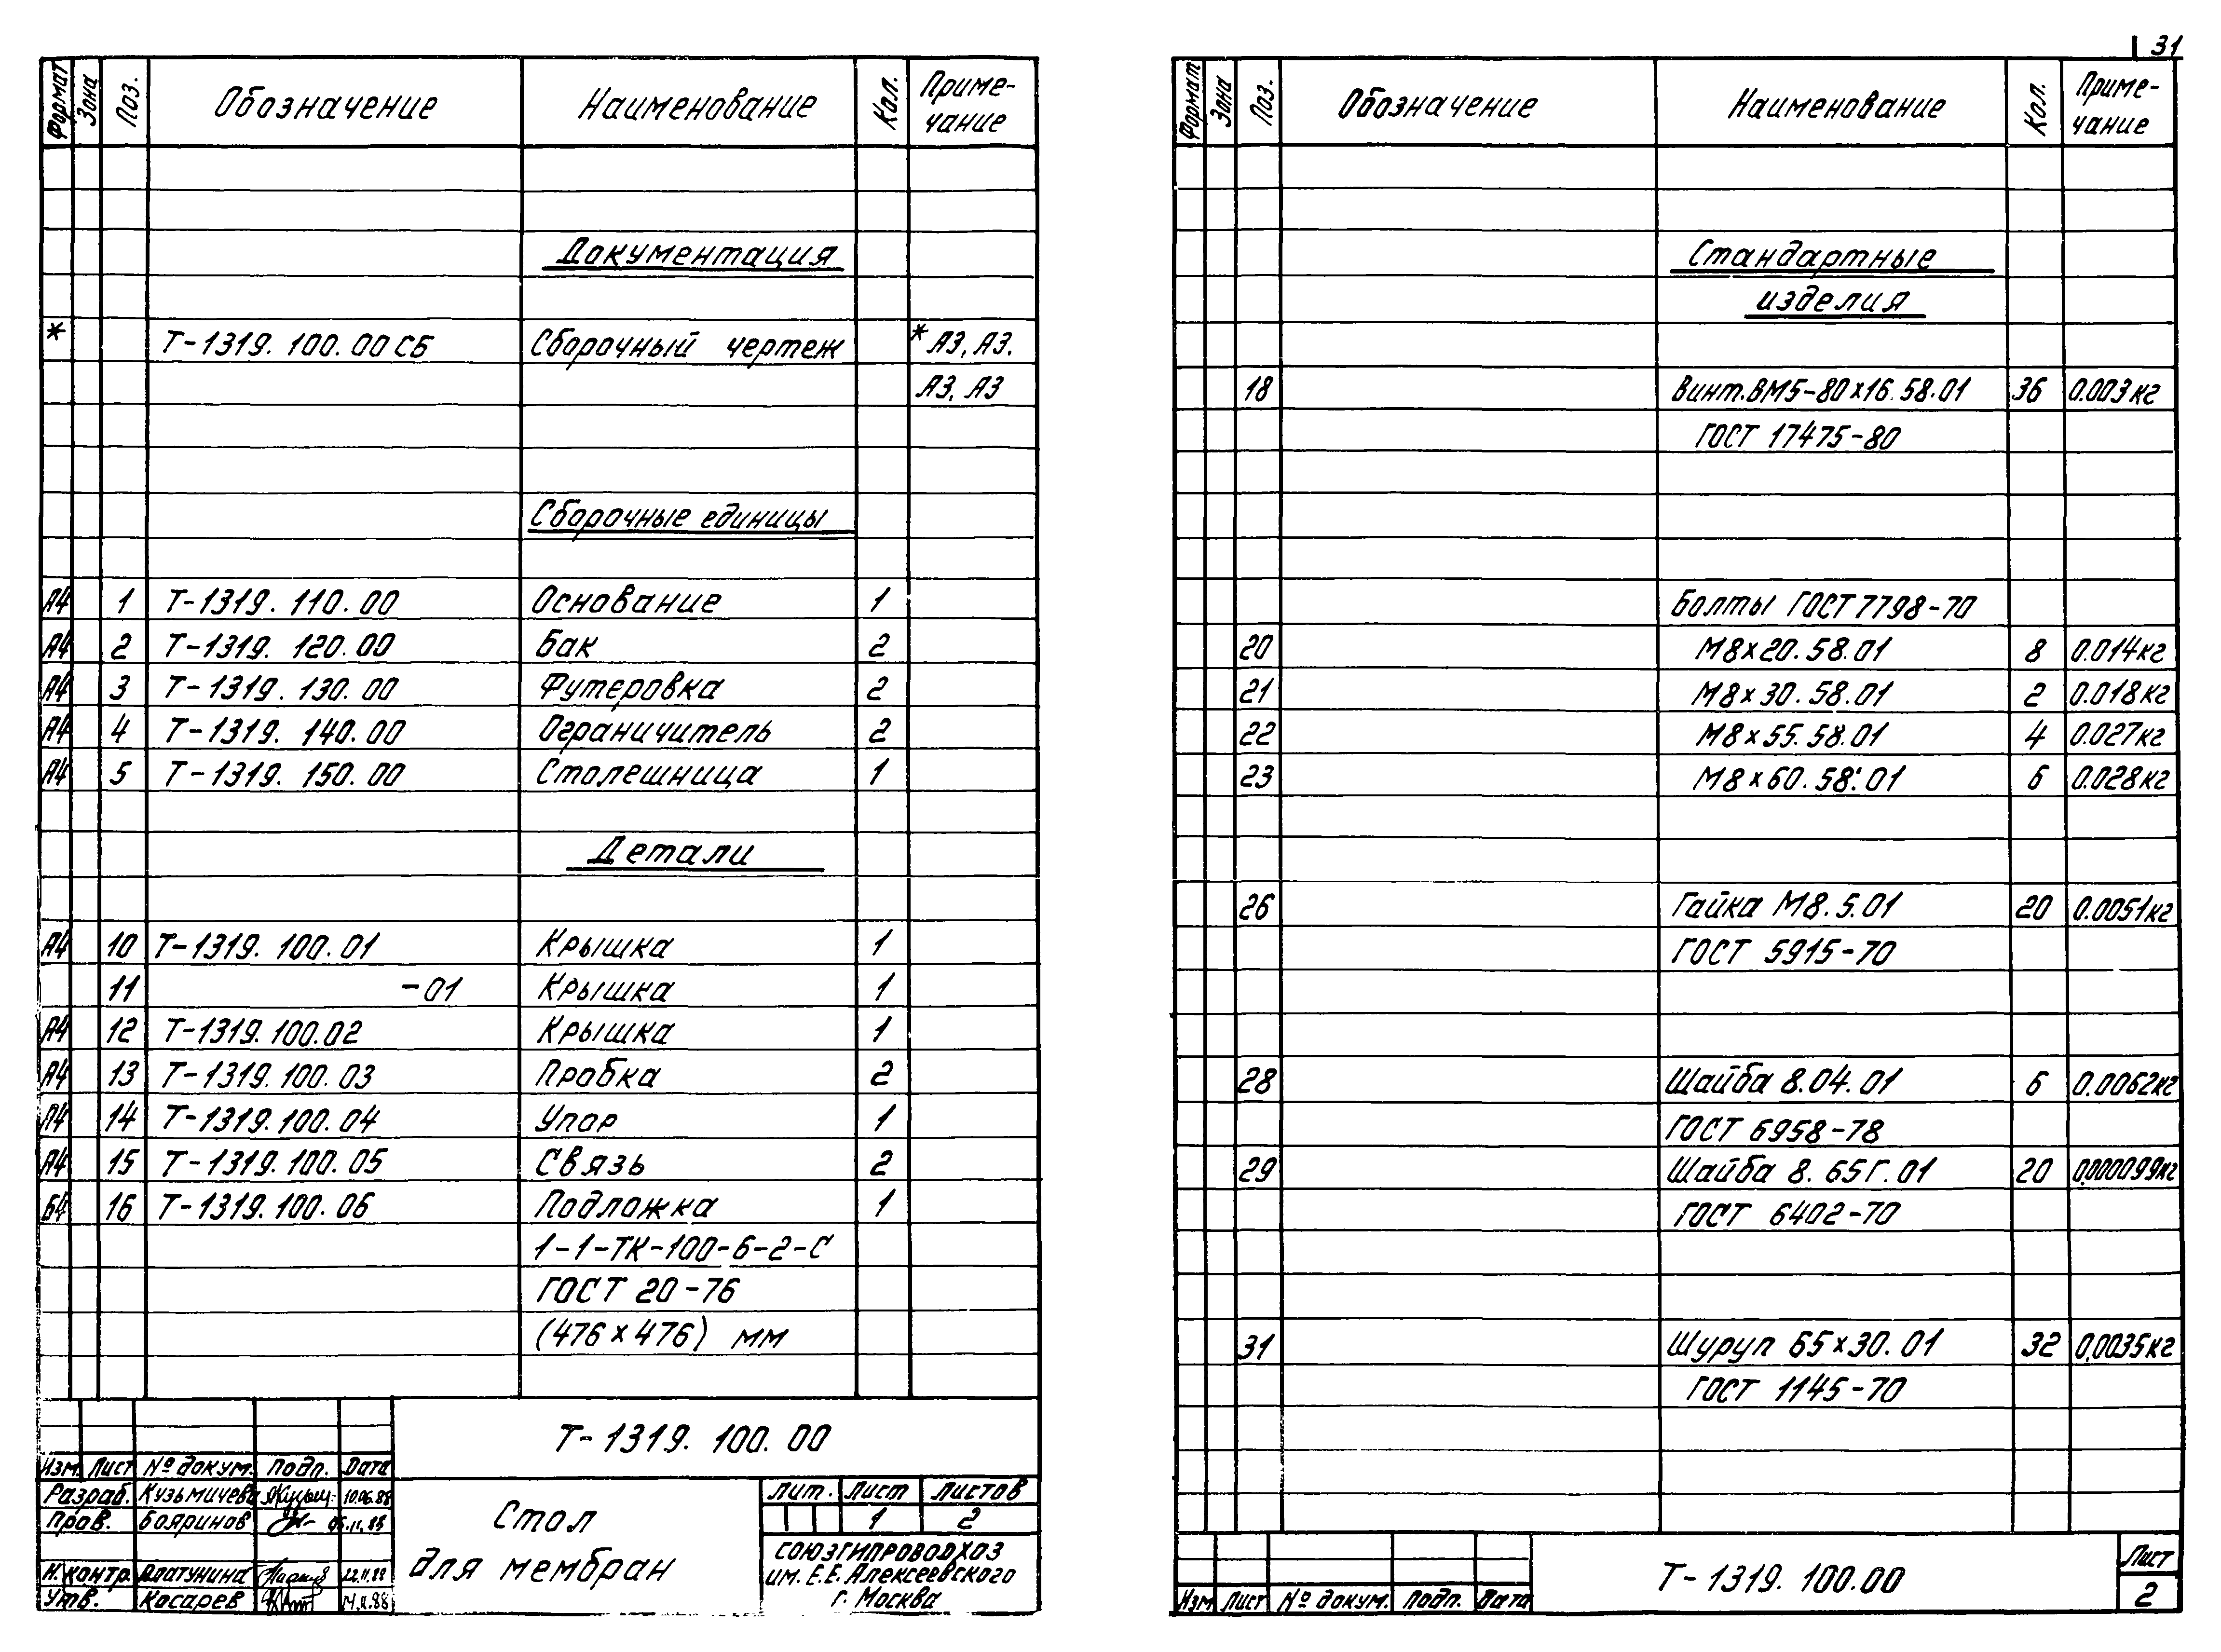 31
Формат Зона Поз. Обозначение Наименование Кол. Приме-
чание
Документация
* Т-1319. 100. 00 СБ Сборочный чертеж * А3, А3.
А3, А3
Сборочные единицы
А4 1 Т-1319. 110. 00 Основание 1
А4 2 Т-1319. 120. 00 Бак 2
А4 3 Т-1319. 130. 00 Футеровка 2
А4 4 Т-1319. 140. 00 Ограничитель 2
А4 5 Т-1319. 150. 00 Столешница 1
Детали
А4 10 Т-1319. 100. 01 Крышка 1
11 -01 Крышка 1
А4 12 Т-1319. 100. 02 Крышка 1
А4 13 Т-1319. 100. 03 Пробка 2
А4 14 Т-1319. 100. 04 Упор 1
А4 15 Т-1319. 100. 05 Связь 2
Б4 16 Т-1319. 100. 06 Подложка 1
1-1-ТК-100-6-2-С
ГОСТ 20-76
(476×476) мм
Т-1319. 100. 00
Изм. Лист № докум. Подп. Дата
Разраб. Кузьмичева 10.06.88
Пров. Бояринов
Н. контр. Платунина 22.11.88
Утв. Косарев
Стол
для мембран
Лит. Лист Листов
1 2
СОЮЗГИПРОВОДХОЗ
им. Е.Е. Алексеевского
г. Москва
Формат Зона Поз. Обозначение Наименование Кол. Приме-
чание
Стандартные
изделия
18 Винт.ВМ5-80×16.58.01 36 0.003кг
ГОСТ 17475-80
Болты ГОСТ 7798-70
20 М8×20.58.01 8 0.014кг
21 М8×30.58.01 2 0.018кг
22 М8×55.58.01 4 0.027кг
23 М8×60.58.01 6 0.028кг
26 Гайка М8.5.01 20 0.0051кг
ГОСТ 5915-70
28 Шайба 8.04.01 6 0.0062кг
ГОСТ 6958-78
29 Шайба 8.65Г.01 20 0,000099кг
ГОСТ 6402-70
31 Шуруп 65×30.01 32 0,0035кг
ГОСТ 1145-70
Т-1319. 100.00
Лист
2
Изм Лист № докум. Подп. Дата